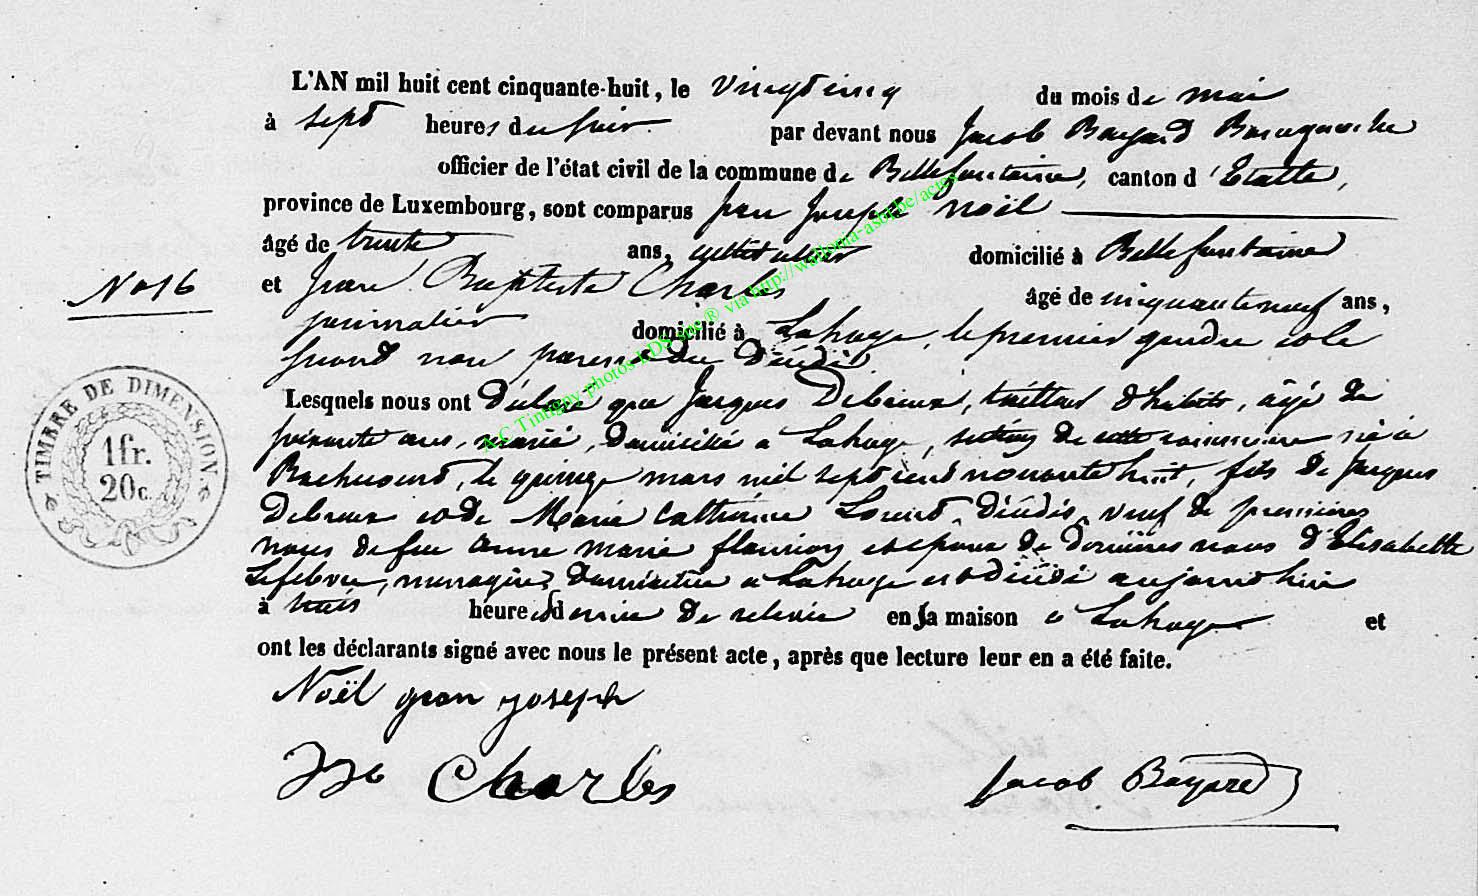 L'AN mil huit cent cinquante-huit, le vingt cinq du mois de mai
à sept heures du soir par devant nous Jacob Bayard Bourgmestre
officier de l'état civil de la commune de Bellefontaine, canton d'Etalle,
province de Luxembourg, sont comparus Jean Joseph Noël
âgé de trente ans, cultivateur domicilié à Bellefontaine
No 16
et Jean Baptiste Charles âgé de cinquante neuf ans,
journalier domicilié à Lahage, le premier gendre et le
second non parent du décédé
Lesquels nous ont déclaré que Jacques Debreux, tailleur d'habits, âgé de
soixante ans, marié, domicilié à Lahage, section de cette commune né à
Rachecourt, le quinze mars mil sept cent nonante huit, fils de Jacques
Debreux et de Marie Catherine décédés, veuf de premières
noces de feu Anne Marie et époux de dernières noces d'Elisabette
Lefebvre, ménagère, domiciliée à Lahage est décédé aujourd'hui
à trois heures et demie de relevée en sa maison à Lahage et
ont les déclarants signé avec nous le présent acte, après que lecture leur en a été faite.
Noël jean joseph
Charles
Jacob Bayard
TIMBRE DE DIMENSION.
1fr.
20c.
A.C. Tintigny photos LDS via http://wallonia-asbl.be/actes